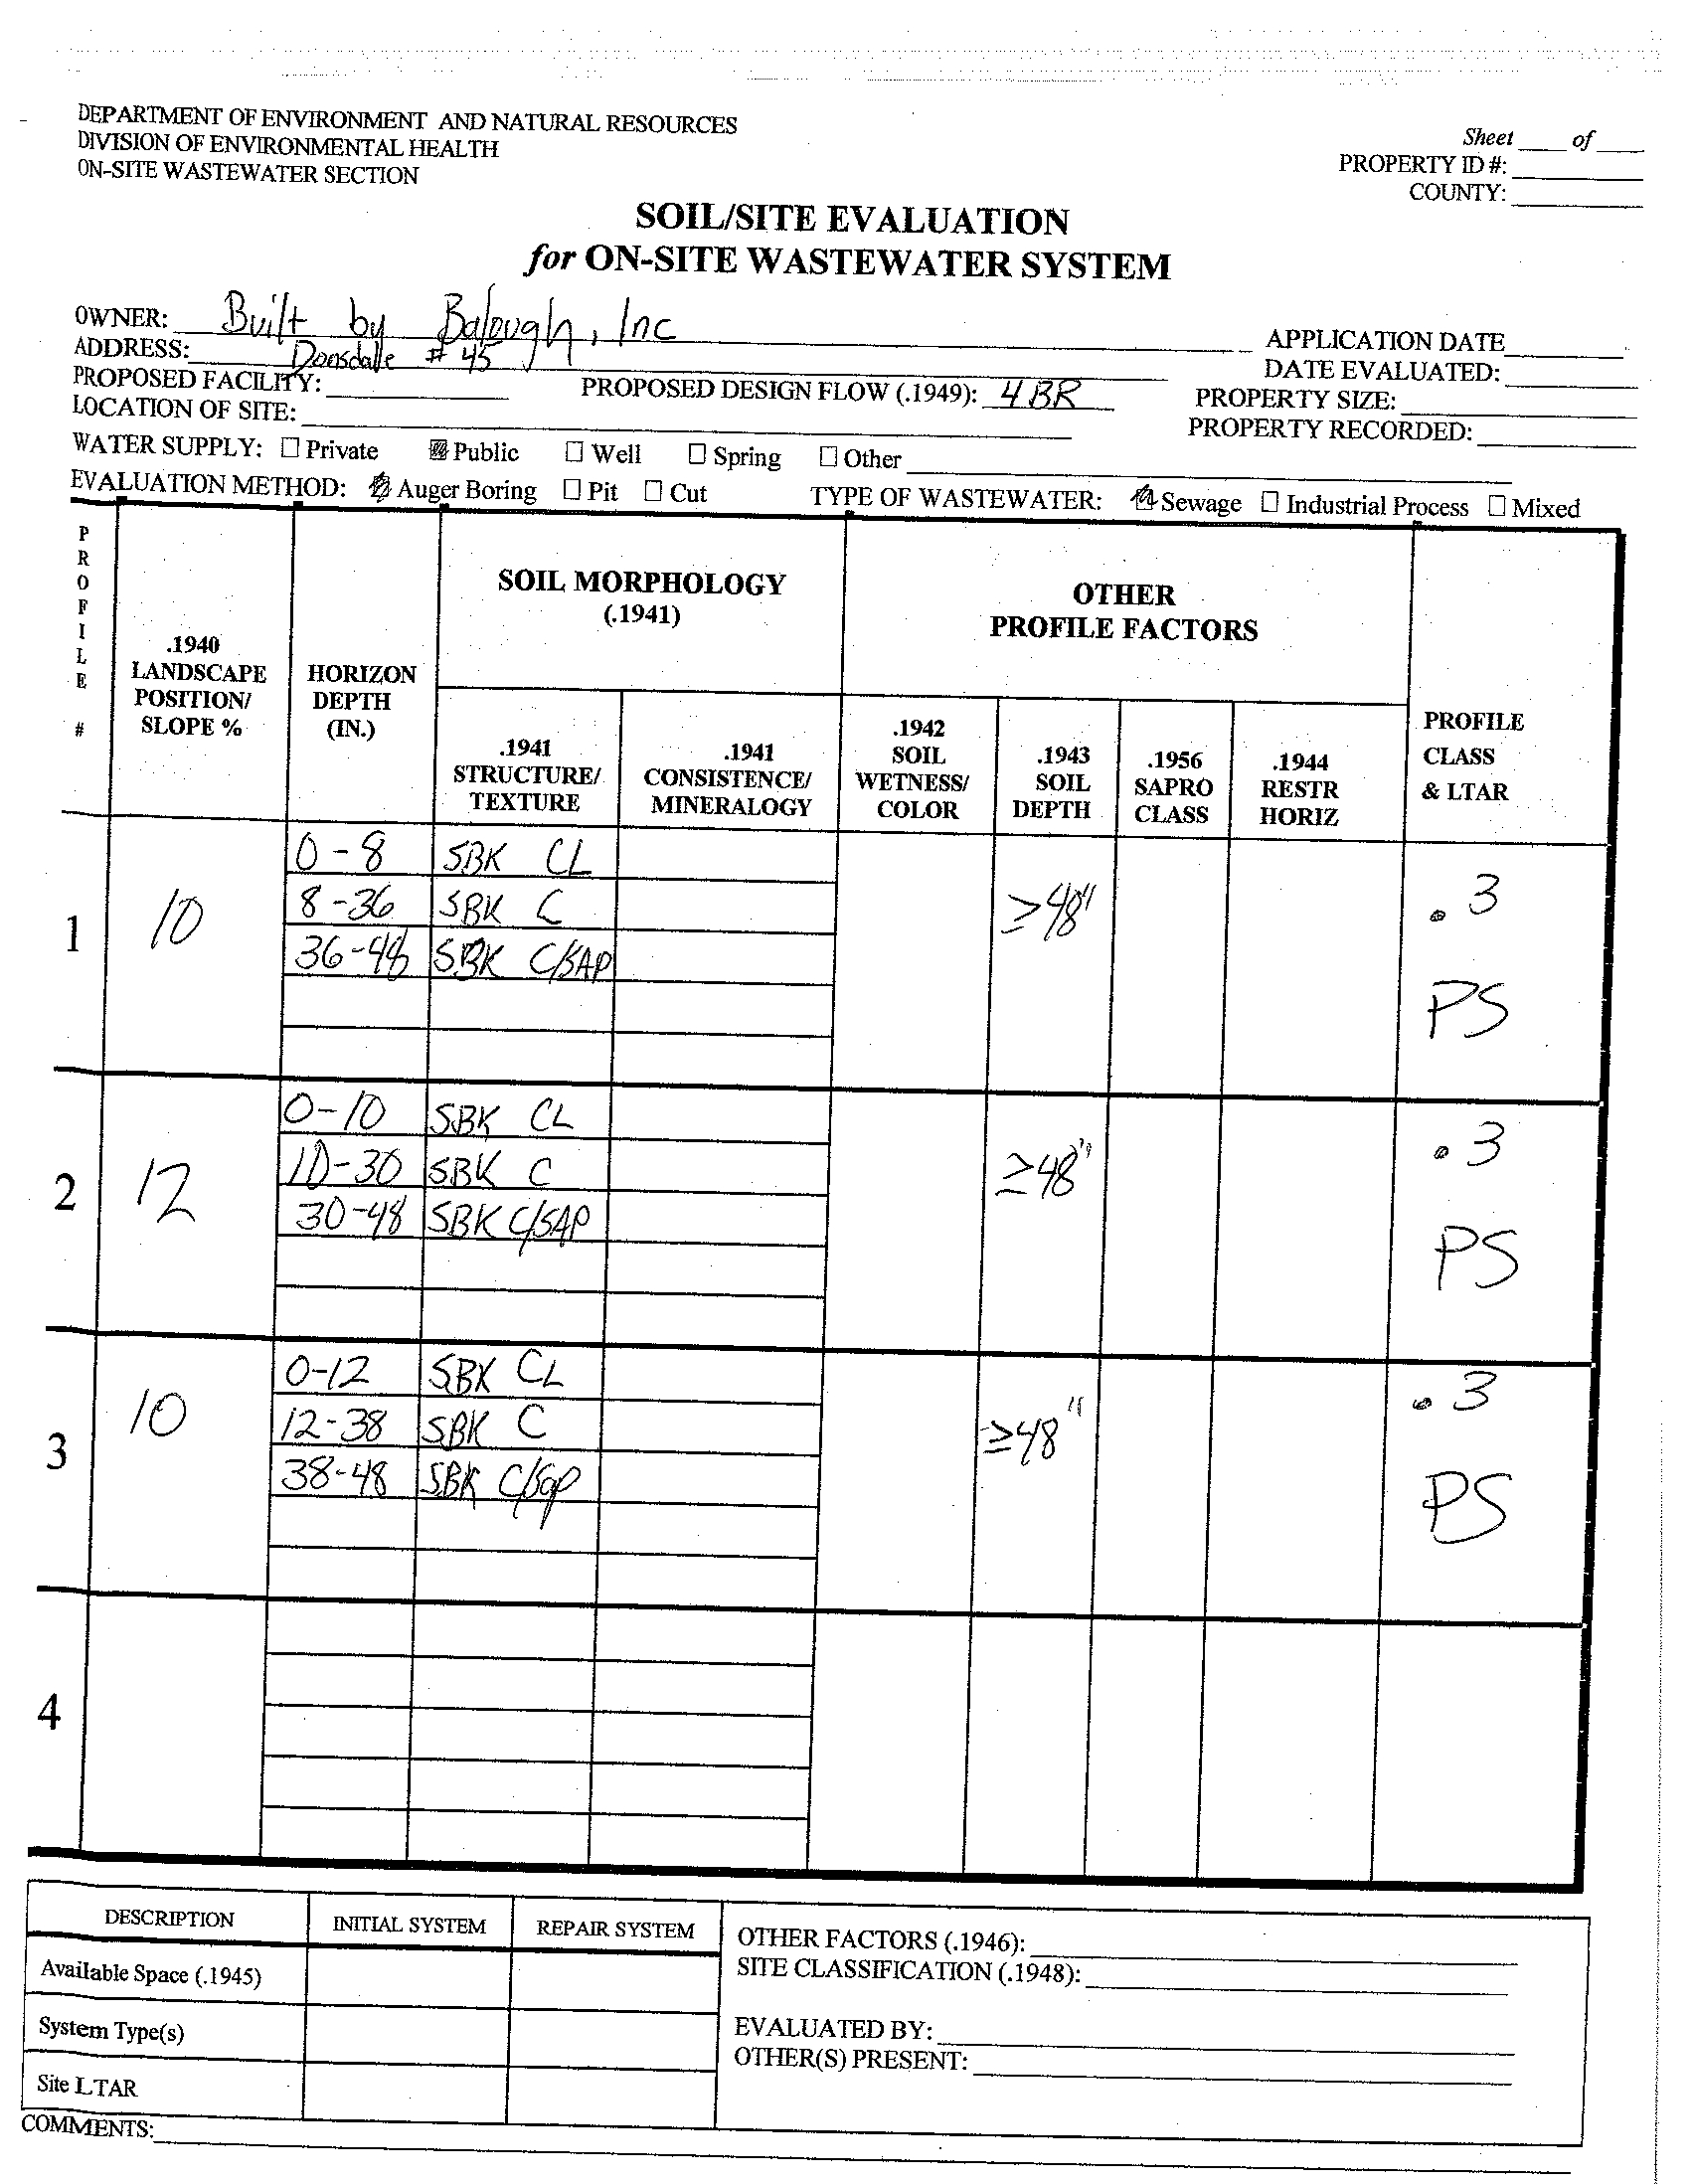 DEPARTMENT OF ENVIRONMENT AND NATURAL RESOURCES
DIVISION OF ENVIRONMENTAL HEALTH
ON-SITE WASTEWATER SECTION
Sheet ____ of ____
PROPERTY ID #:
COUNTY:
SOIL/SITE EVALUATION
for ON-SITE WASTEWATER SYSTEM
OWNER: Built by Balough, Inc
APPLICATION DATE
ADDRESS: # 45
DATE EVALUATED:
PROPOSED FACILITY: PROPOSED DESIGN FLOW (.1949): 4 BR
PROPERTY SIZE:
LOCATION OF SITE:
PROPERTY RECORDED:
WATER SUPPLY: ☐ Private ☒ Public ☐ Well ☐ Spring ☐ Other
EVALUATION METHOD: ☒ Auger Boring ☐ Pit ☐ Cut TYPE OF WASTEWATER: ☒ Sewage ☐ Industrial Process ☐ Mixed
PROFILE #
.1940
LANDSCAPE
POSITION/
SLOPE %
HORIZON
DEPTH
(IN.)
SOIL MORPHOLOGY
(.1941)
.1941
STRUCTURE/
TEXTURE
.1941
CONSISTENCE/
MINERALOGY
OTHER
PROFILE FACTORS
.1942
SOIL
WETNESS/
COLOR
.1943
SOIL
DEPTH
.1956
SAPRO
CLASS
.1944
RESTR
HORIZ
PROFILE
CLASS
& LTAR
1 10
0-8 SBK CL
8-36 SBK C
36-48 SBK C/SAP
≥48"
.3
PS
2 12
0-10 SBK CL
10-30 SBK C
30-48 SBK C/SAP
≥48"
.3
PS
3 10
0-12 SBK CL
12-38 SBK C
38-48 SBK C/Sap
≥48"
.3
PS
4
DESCRIPTION INITIAL SYSTEM REPAIR SYSTEM
Available Space (.1945)
System Type(s)
Site LTAR
OTHER FACTORS (.1946):
SITE CLASSIFICATION (.1948):
EVALUATED BY:
OTHER(S) PRESENT:
COMMENTS: